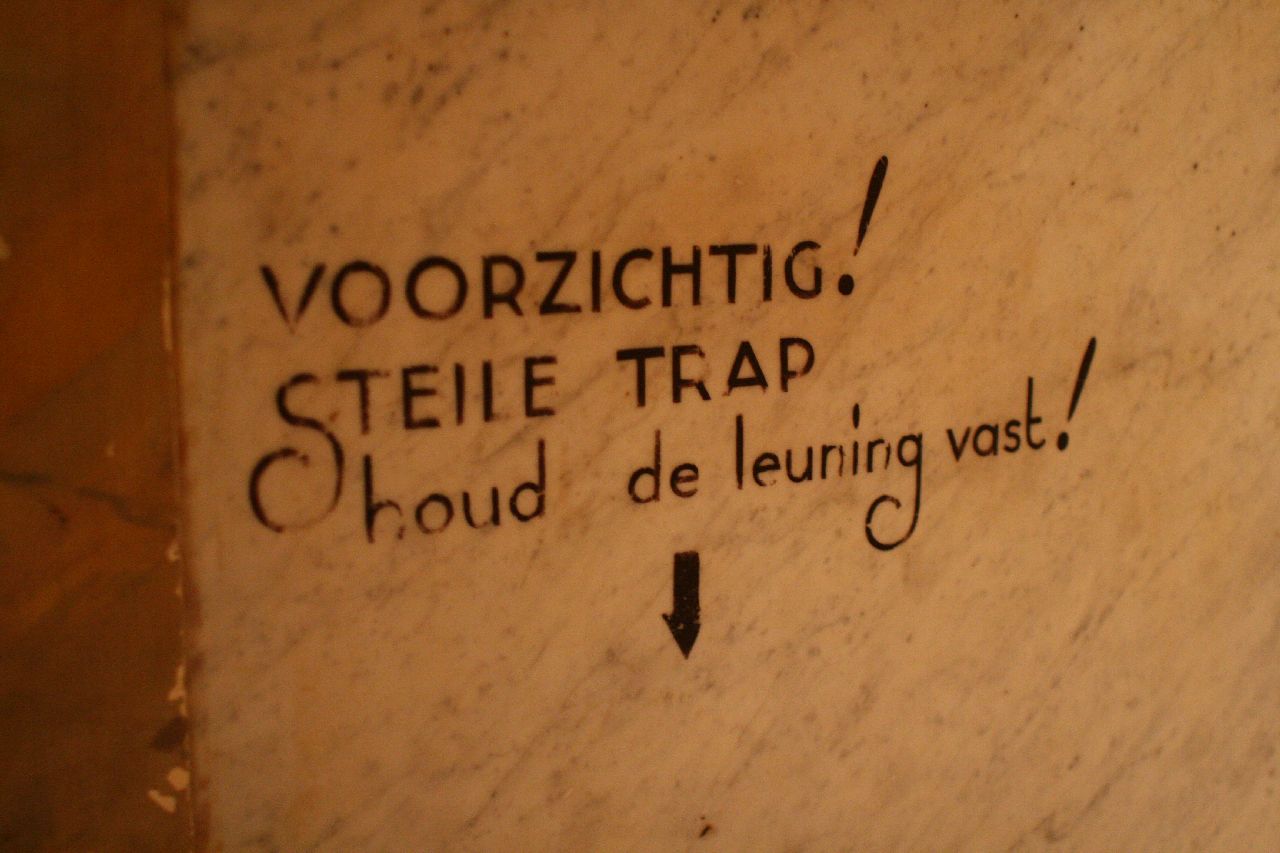 VOORZICHTIG!
STEILE TRAP
houd de leuning vast!